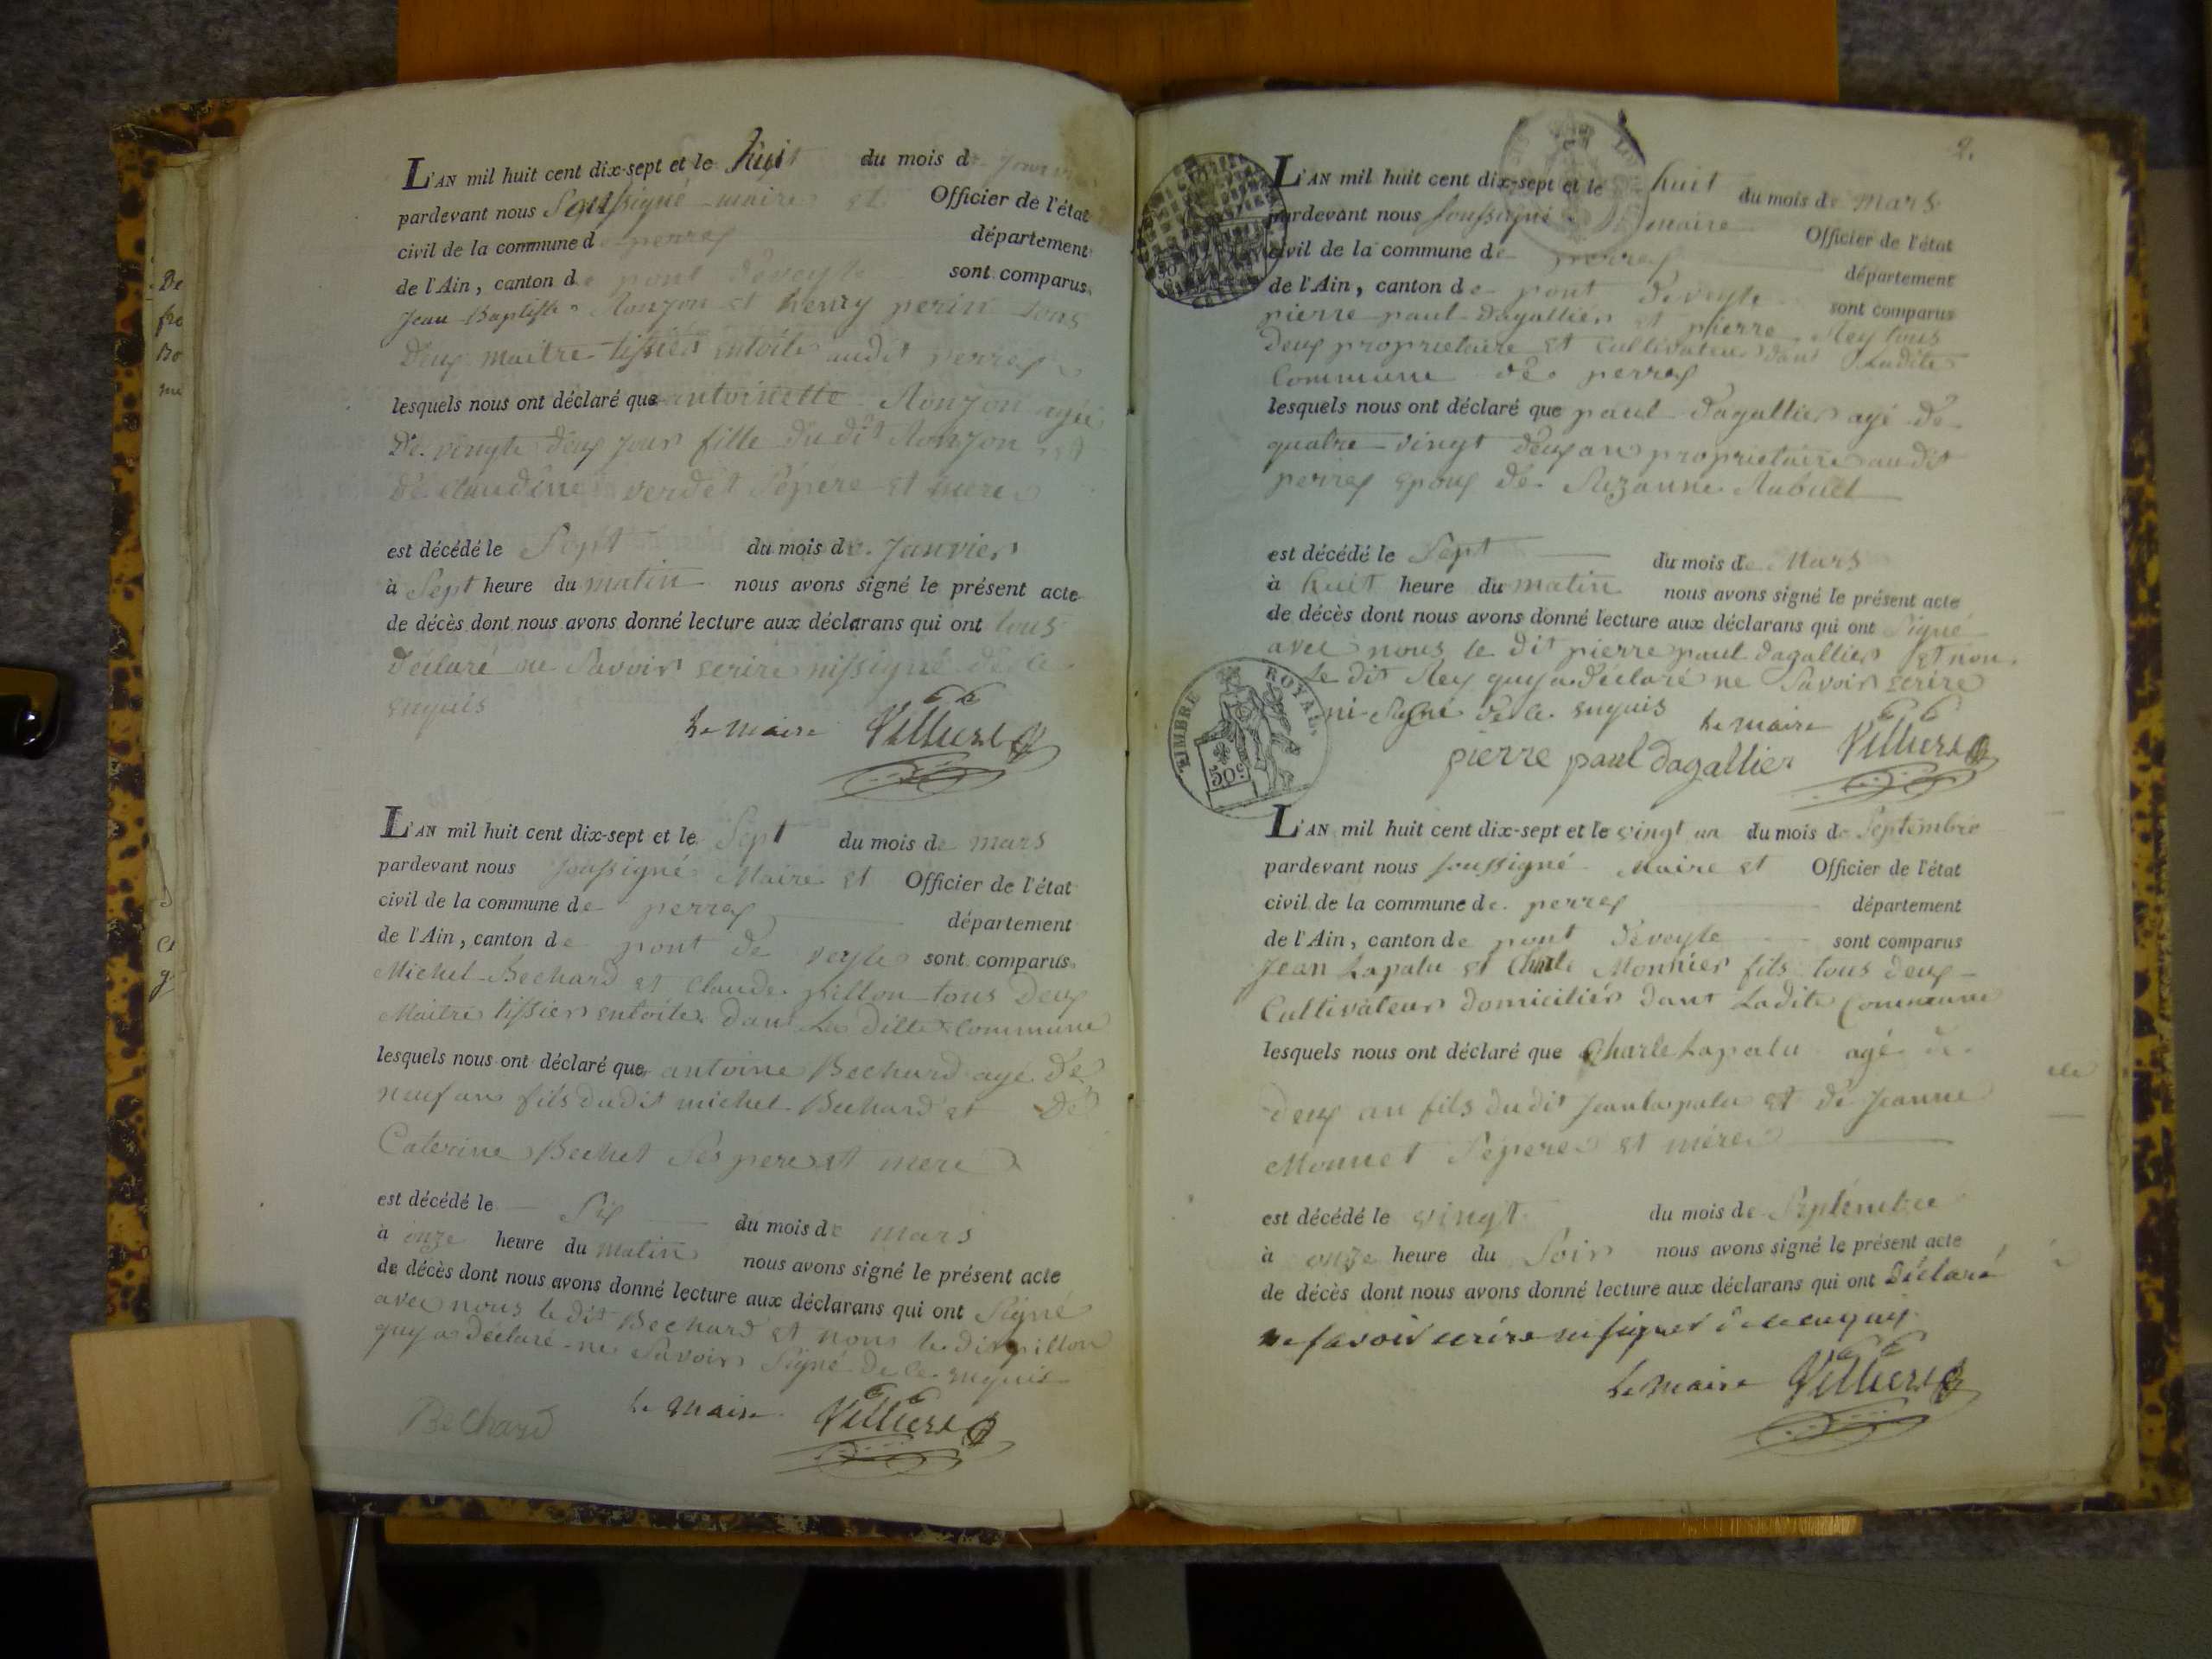 De
fre
Bo
me
L'AN mil huit cent dix-sept et le huit du mois de Janvier
pardevant nous soussigné maire et Officier de l'état
civil de la commune de perrex département
de l'Ain, canton de pont deveyle sont comparus
Jean Baptiste Ronjon et henry perin tous
deux maitre tissier entoile audit perrex
lesquels nous ont déclaré que antoinette Ronjon agée
De vingte deux jour fille dudit Ronjon et
de Claudine verdet sépere et mere
est décédé le Sept du mois de Janvier
à Sept heure du matin nous avons signé le présent acte
de décès dont nous avons donné lecture aux déclarans qui ont tous
déclaré ne Savoir ecrire nissigné de ce
enquis
Le maire Villiere
L'AN mil huit cent dix-sept et le Sept du mois de mars
pardevant nous soussigné Maire et Officier de l'état
civil de la commune de perrex département
de l'Ain, canton de pont de veyle sont comparus
Michel Bechard et Claude pillon tous Deux
Maitre tissier entoile dans La ditte Commune
lesquels nous ont déclaré que antoine Bechard agé de
neuf ans fils dudit michel Bechard et De
Caterine Bechet Ses pere et mere
est décédé le Six du mois de mars
à onze heure du matin nous avons signé le présent acte
de décès dont nous avons donné lecture aux déclarans qui ont Signé
avec nous le dit Bechard et nom le dit pillon
quya déclaré ne Savoir Signé de ce enquis
Bechard Le maire Villiere
2.
L'AN mil huit cent dix-sept et le huit du mois de mars
pardevant nous soussigné maire Officier de l'état
civil de la commune de perrex département
de l'Ain, canton de pont deveyle sont comparus
pierre paul dagallier et pierre Rey tous
deux proprietaire et cultivateur dans Ladite
Commune de perrex
lesquels nous ont déclaré que paul dagallier agé de
quatre vingt deux an proprietaire audit
perrex epoux de Suzanne Rabuel
est décédé le Sept du mois de Mars
à huit heure du matin nous avons signé le présent acte
de décès dont nous avons donné lecture aux déclarans qui ont Signé
avec nous le dit pierre paul dagallier et non
Le dit Rey quya déclaré ne Savoir ecrire
ni Signé de ce enquis
TIMBRE ROYAL.
50c
Le maire Villiere
pierre paul dagallier
L'AN mil huit cent dix-sept et le vingt un du mois de Septembre
pardevant nous soussigné Maire et Officier de l'état
civil de la commune de perrex département
de l'Ain, canton de pont deveyle sont comparus
Jean Lapalu et Charle Monnier fils tous deux
Cultivateur domicilier dans Ladite Commune
lesquels nous ont déclaré que Charle Lapalu agé de
deux an fils dudit Jean Lapalu et de Jeanne
Monnet Sépere et mére
est décédé le vingt du mois de Septembre
à onze heure du Soir nous avons signé le présent acte
de décès dont nous avons donné lecture aux déclarans qui ont déclaré
ne savoir ecrire ni signer de ce enquis
Le maire Villiere